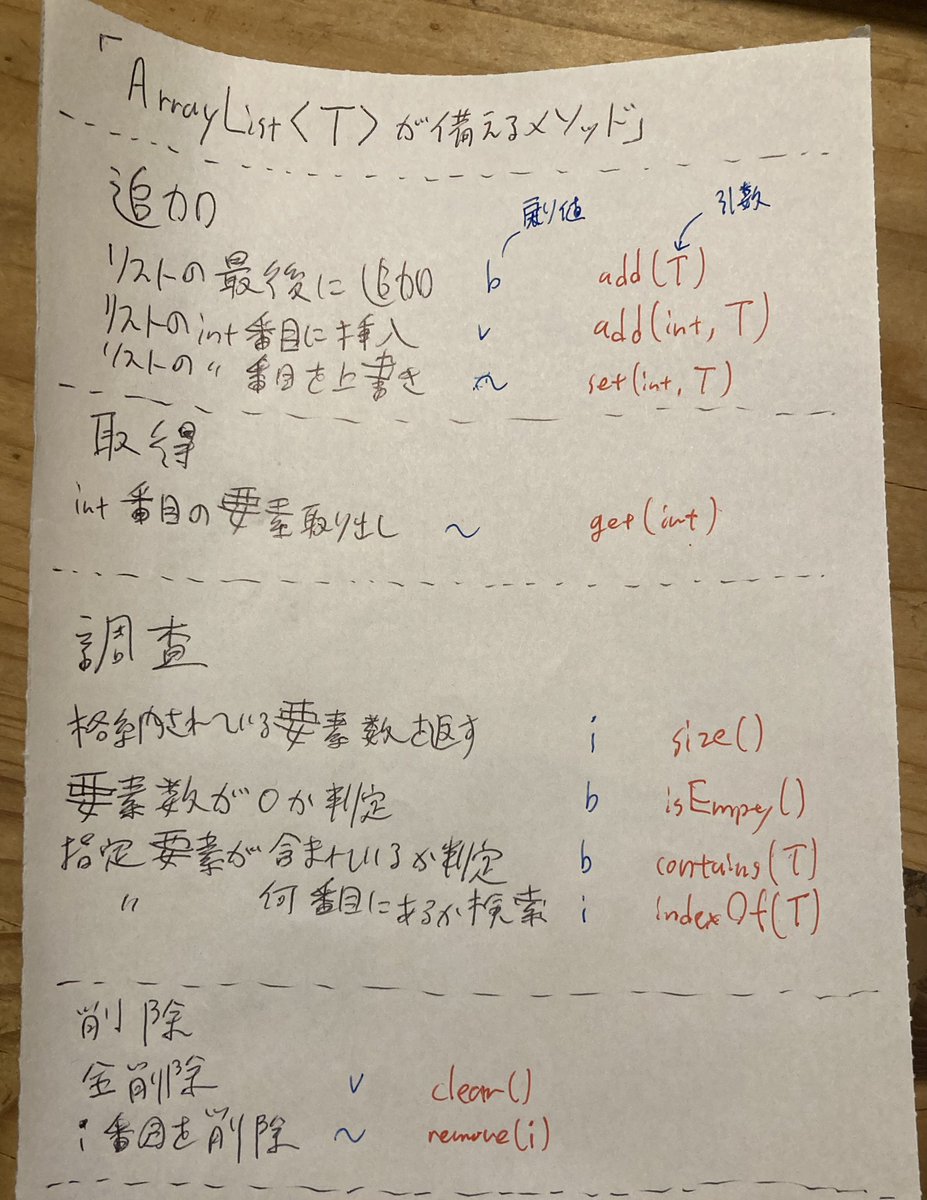 「ArrayList<T>が備えるメソッド」
追加
戻り値 引数
リストの最後に追加 b add(T)
リストのint番目に挿入 v add(int, T)
リストの〃番目を上書き 〜 set(int, T)
取得
int番目の要素取り出し 〜 get(int)
調査
格納されている要素数を返す i size()
要素数が0か判定 b isEmpey()
指定要素が含まれているか判定 b contains(T)
〃 何番目にあるか検索 i indexOf(T)
削除
全削除 v clear()
i番目を削除 〜 remove(i)